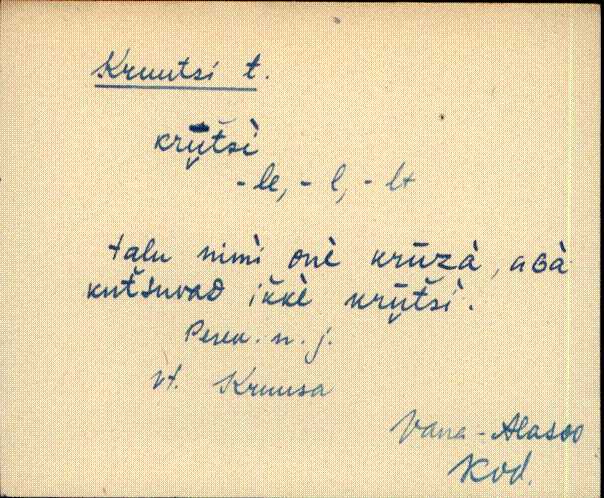 Kruutsi t.
krū̬t́śì
-le, -l, -lt
talu nimì onè krūzà, aɢà
kut́śuvaᴅ ikkè krū̬t́śì.
Peren. n. j.
vt. Kruusa
Vana-Alasoo
Kod.